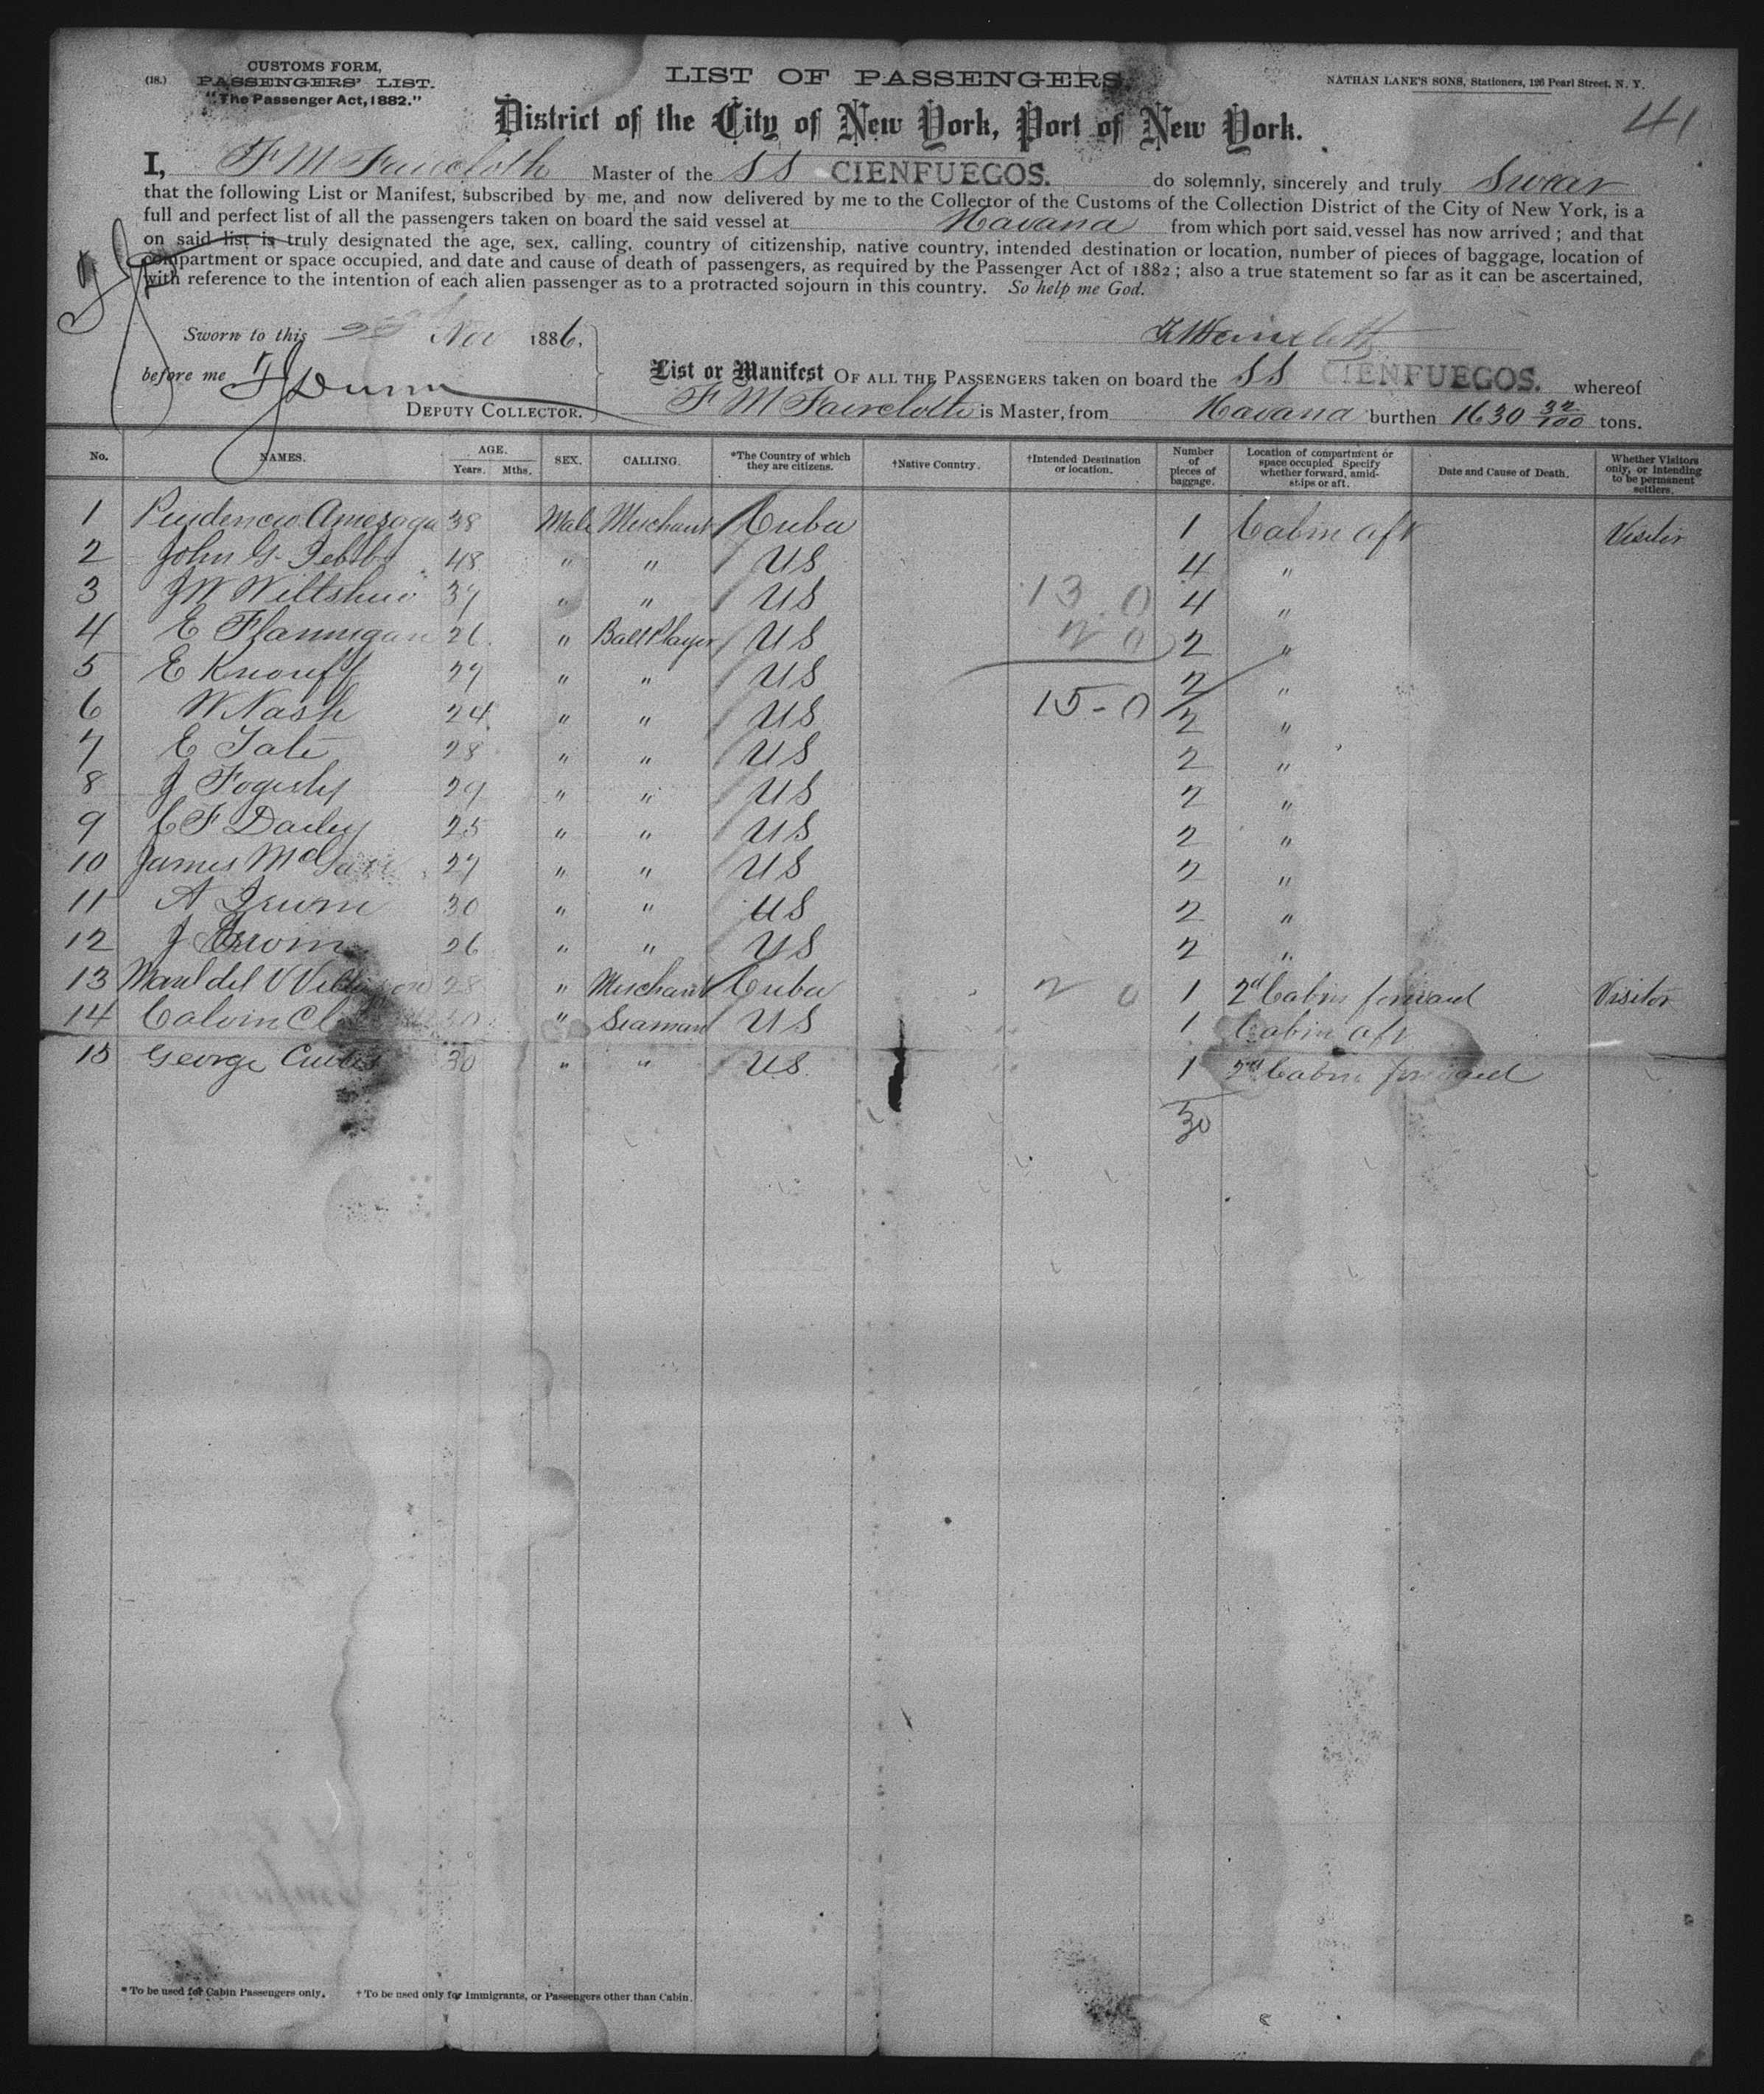 (18.) CUSTOMS FORM,
PASSENGERS' LIST.
"The Passenger Act, 1882."
LIST OF PASSENGERS.
NATHAN LANE'S SONS, Stationers, 126 Pearl Street, N. Y.
41
District of the City of New York, Port of New York.
I, F M Faircloth Master of the SS CIENFUEGOS. do solemnly, sincerely and truly Swear
that the following List or Manifest, subscribed by me, and now delivered by me to the Collector of the Customs of the Collection District of the City of New York, is a
full and perfect list of all the passengers taken on board the said vessel at Havana from which port said vessel has now arrived; and that
on said list is truly designated the age, sex, calling, country of citizenship, native country, intended destination or location, number of pieces of baggage, location of
compartment or space occupied, and date and cause of death of passengers, as required by the Passenger Act of 1882; also a true statement so far as it can be ascertained,
with reference to the intention of each alien passenger as to a protracted sojourn in this country. So help me God.
Sworn to this Nov 1886,
F M Faircloth
before me Dunn
DEPUTY COLLECTOR.
List or Manifest OF ALL THE PASSENGERS taken on board the SS CIENFUEGOS. whereof
F M Faircloth is Master, from Havana burthen 1630 32/100 tons.
No. NAMES. AGE. Years. Mths. SEX. CALLING. *The Country of which they are citizens. †Native Country. †Intended Destination or location. Number of pieces of baggage. Location of compartment or space occupied. Specify whether forward, amidships or aft. Date and Cause of Death. Whether Visitors only, or intending to be permanent settlers.
1 Prudencio Amezaga 38 Male Merchant Cuba 1 Cabin aft Visitor
2 John G. 48 " " US 4 "
3 J W Wiltshire 37 " " US 13 0 4 "
4 E Flannigan 26 " Ball Player US 2 0 2 "
5 E Knouff 27 " " US 2 "
6 W Nash 24 " " US 15-0 2 "
7 E Tate 28 " " US 2 "
8 J Fogerty 29 " " US 2 "
9 C F Dailey 25 " " US 2 "
10 James Mc 27 " " US 2 "
11 A 30 " " US 2 "
12 J 26 " " US 2 "
13 del V 28 " Merchant Cuba 2 0 1 2d Cabin forward Visitor
14 Calvin " Seaman US 1 Cabin aft
15 George 30 " " US 1 2d Cabin forward
30
* To be used for Cabin Passengers only. † To be used only for Immigrants, or Passengers other than Cabin.